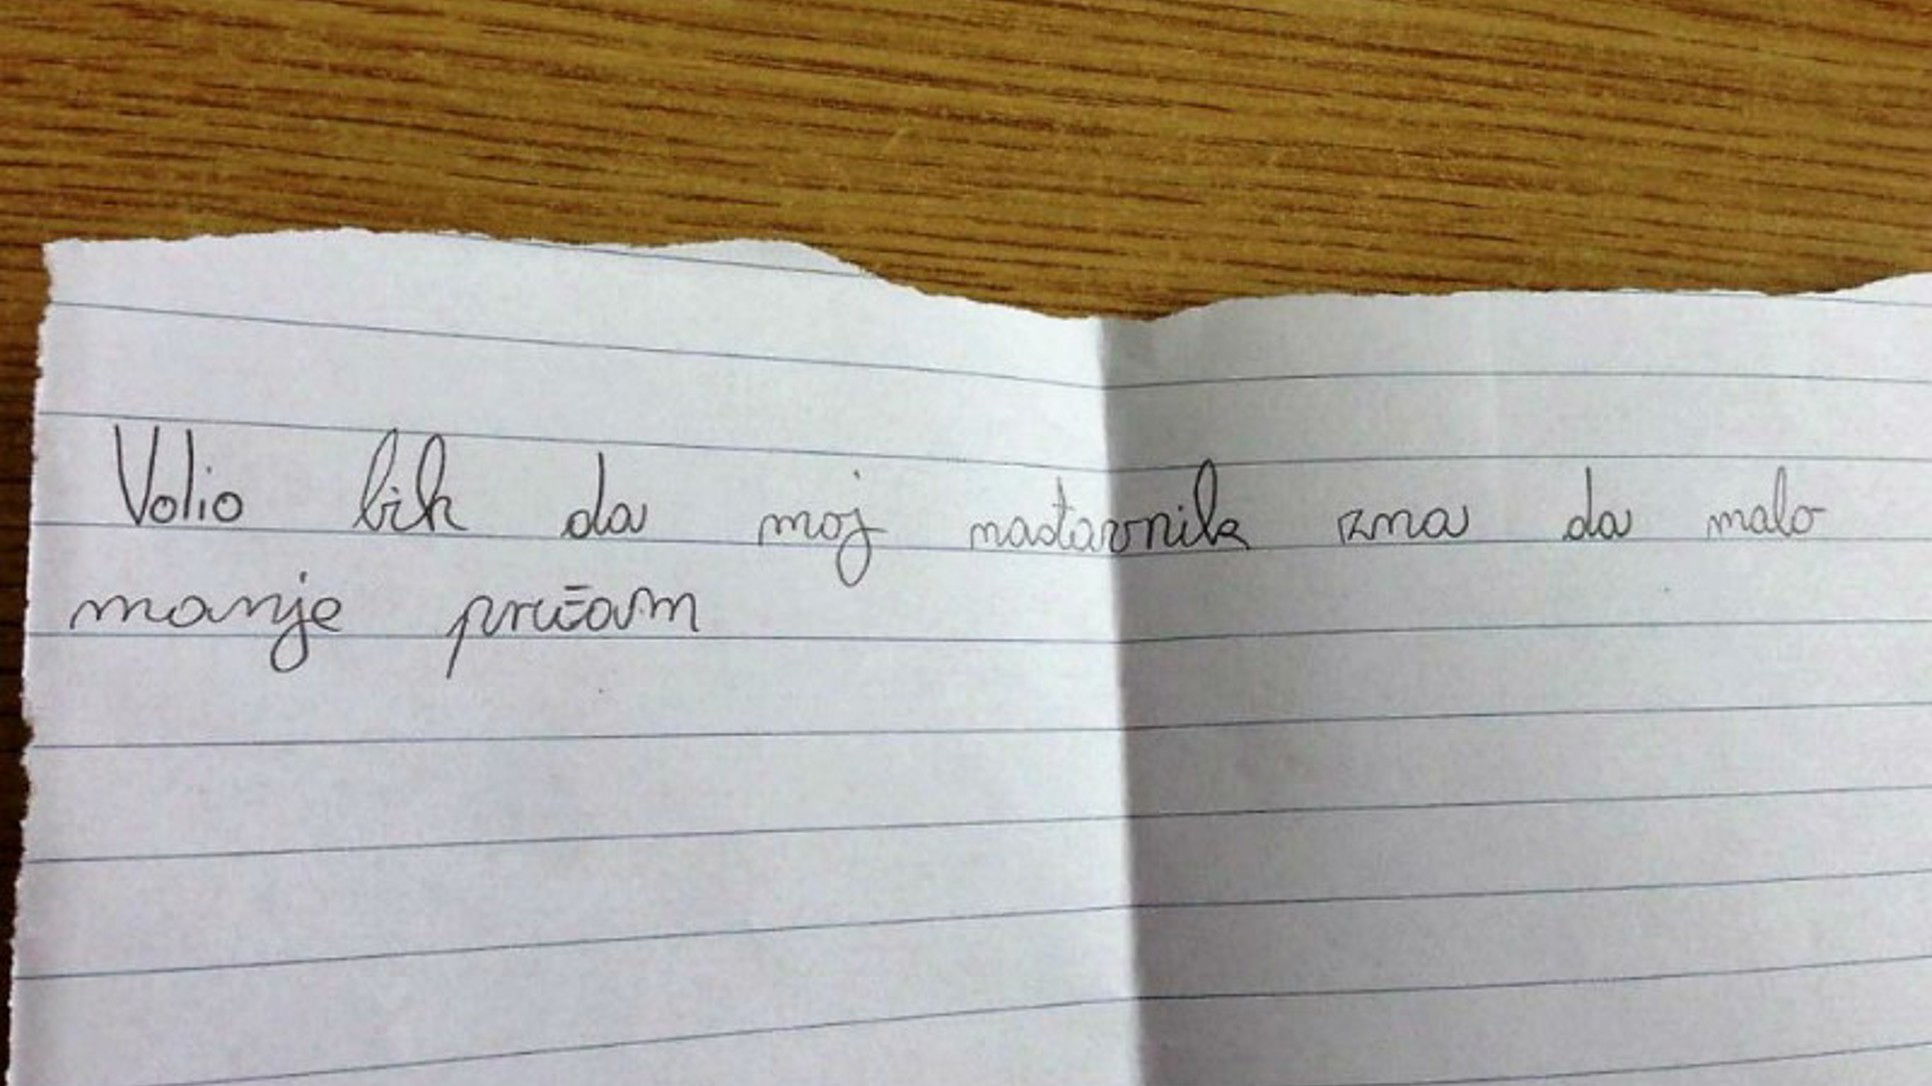 Volio bih da moj nastavnik zna da malo
manje pričam